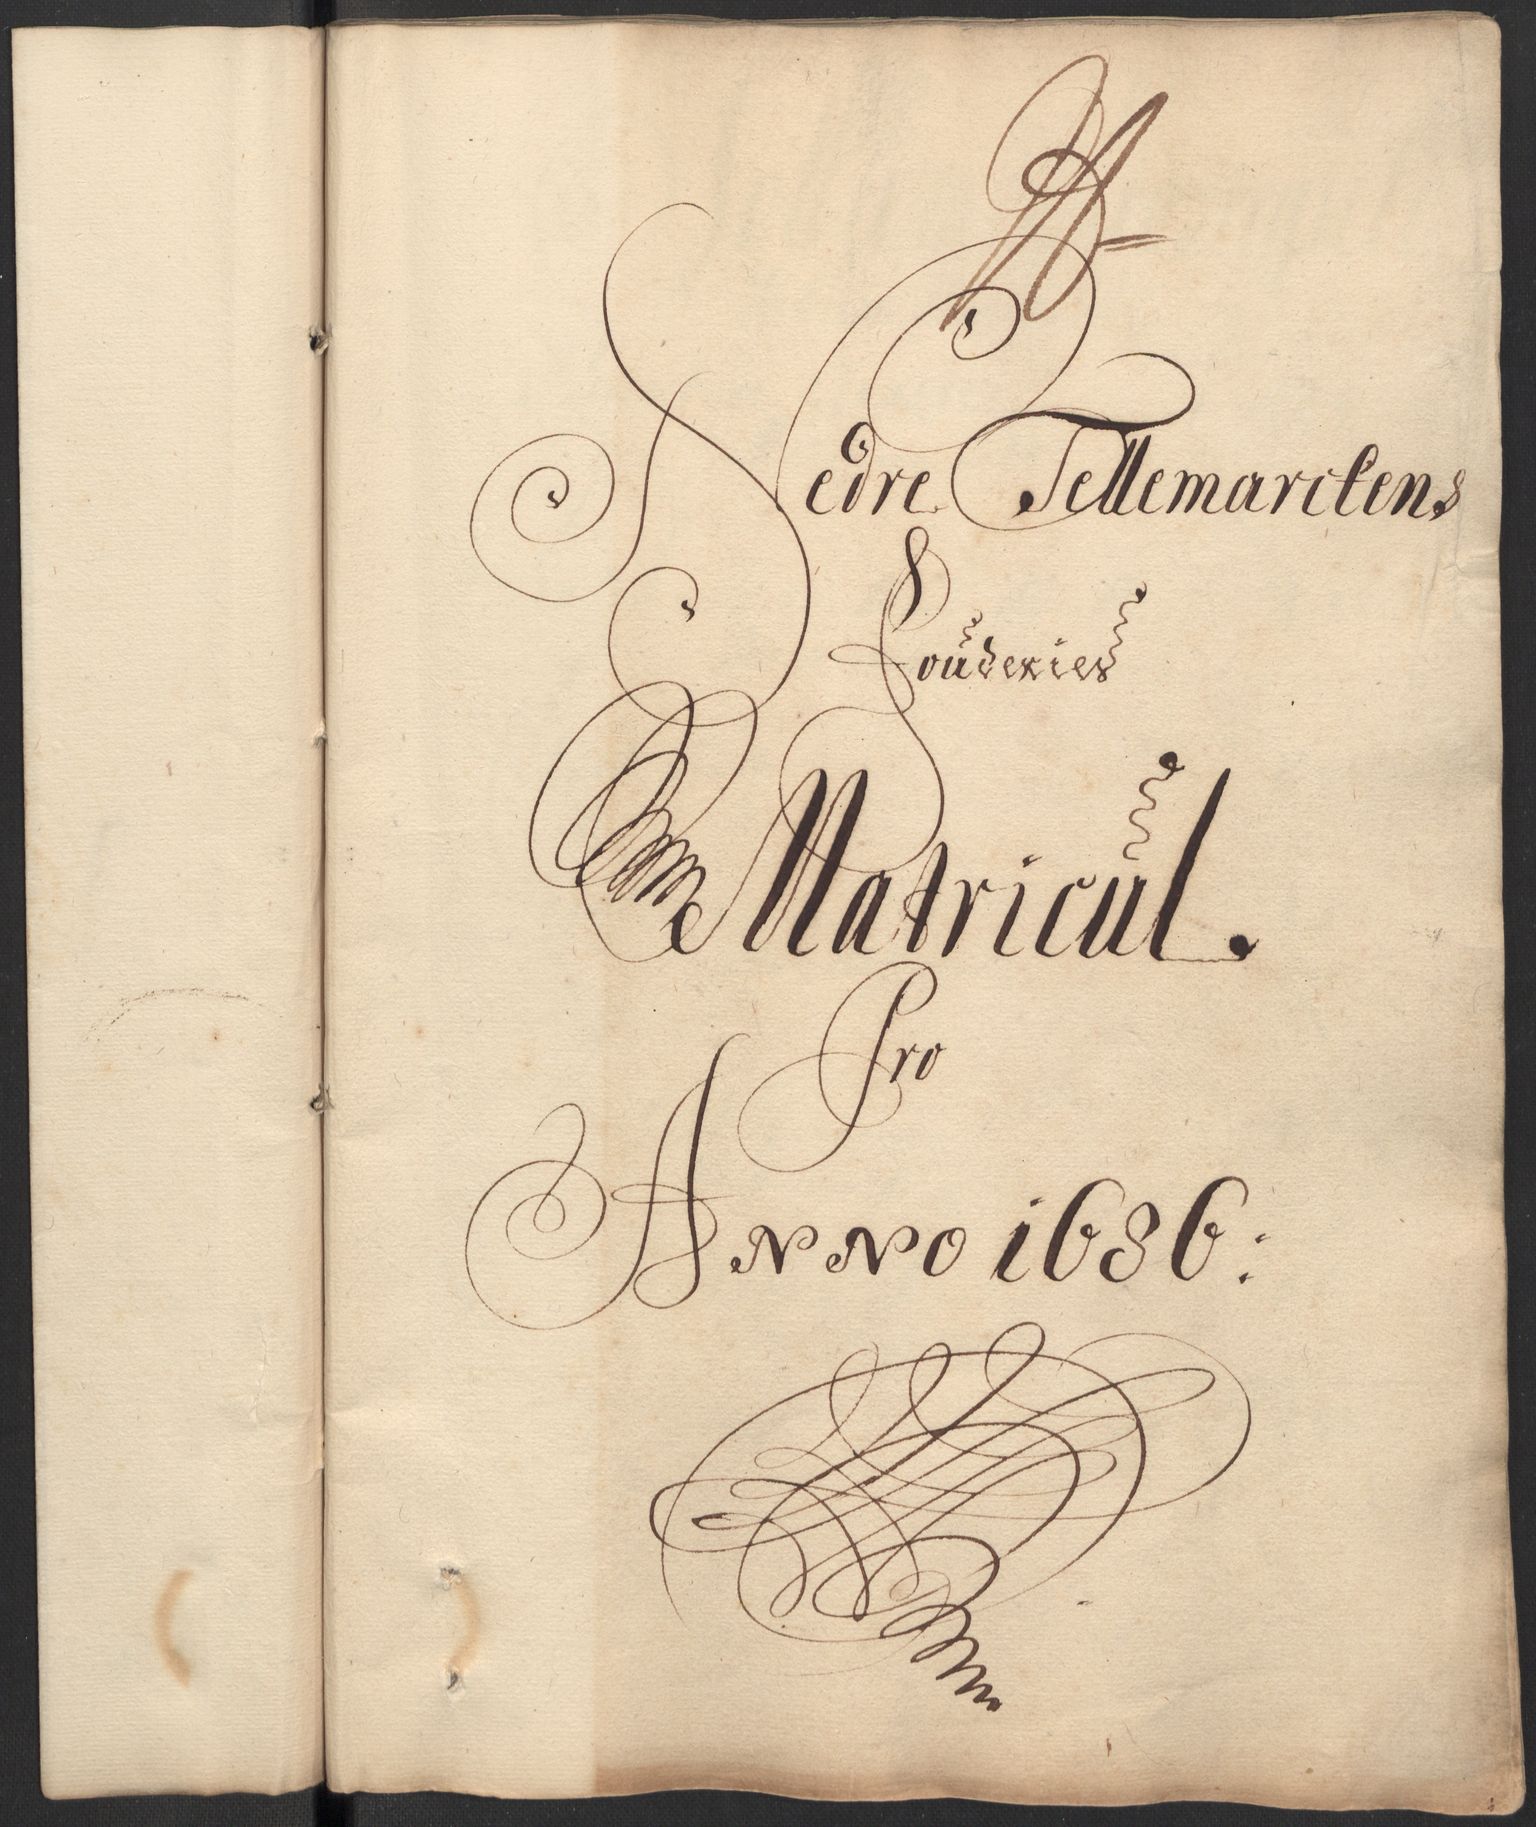 Nedre Tellemarckens
Fouderies
Matricul.
Pro
Anno 1686: